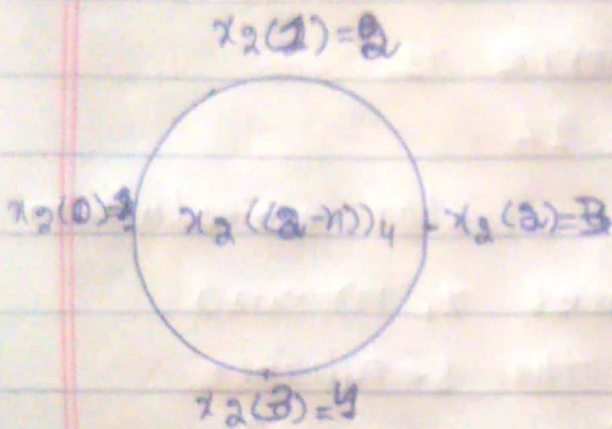 x₂(1)=2
x₂(0)=1 x₂((2-n))₄ x₂(2)=3
x₂(3)=4